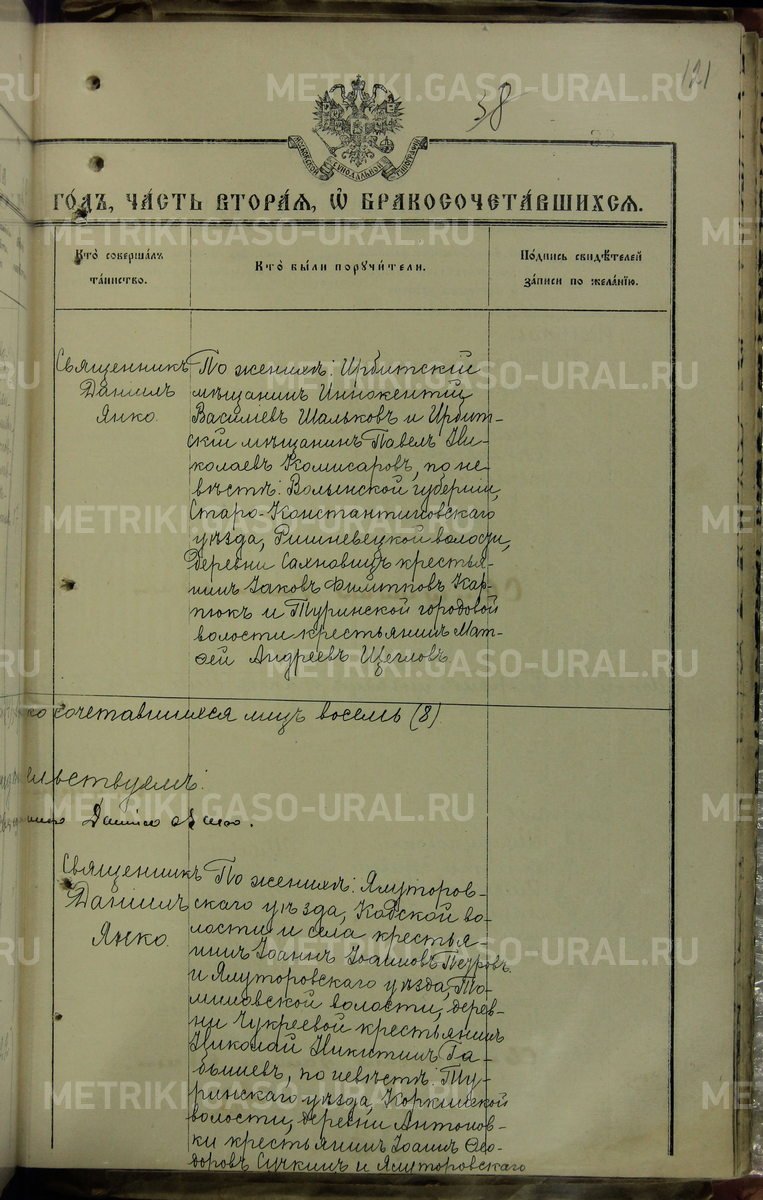 121
38
МОСКОВСКОЙ СѴНОДАЛЬНОЙ ТИПОГРАФІИ
ГО́ДЪ, ЧА́СТЬ ВТОРА́Я, Ѿ БРАКОСОЧЕТА́ВШИХСЯ.
Кто̀ соверша́лъ та́инство.
Кто̀ бы́ли поручи́тели.
По́дпись свидѣ́телей за́писи по жела́нїю.
Священникъ
Даніилъ
Янко.
По женихѣ: Ирбитскій
мѣщанинъ Иннокентій
Василіевъ Шальковъ и Ирбит-
скій мѣщанинъ Павелъ Ни-
колаевъ Комисаровъ, по не-
вѣстѣ: Волынской губерніи,
Старо-Константиновскаго
уѣзда, Ришневецкой волости,
деревни Сахновицъ крестья-
нинъ Іаковъ Филипповъ Кар-
пюкъ и Туринской городовой
волости крестьянинъ Мат-
ѳей Андреевъ Щегловъ.
ко сочетавшихся лицъ восемь (8)
ельствуемъ:
Даніилъ Янко.
Священникъ
Даніилъ
Янко.
По женихѣ: Ялуторов-
скаго уѣзда, Кодской во-
лости и села крестья-
нинъ Іоаннъ Іоанновъ Петровъ
и Ялуторовскаго уѣзда, То-
миловской волости, дерев-
ни Чукреевой крестьянинъ
Николай Никитинъ Га-
бышевъ, по невѣстѣ: Ту-
ринскаго уѣзда, Коркинской
волости, деревни Антонов-
ки крестьянинъ Іоаннъ Ѳео-
доровъ Сучкинъ и Ялуторовскаго
METRIKI.GASO-URAL.RU